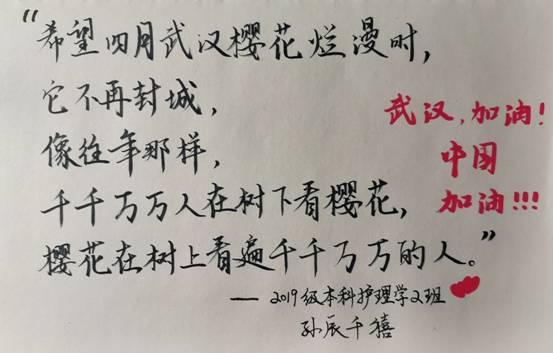 “希望四月武汉樱花烂漫时，
它不再封城，
像往年那样，
千千万万人在树下看樱花，
樱花在树上看遍千千万万的人。”
武汉，加油！
中国
加油!!!
——2019级本科护理学2班
孙辰千禧